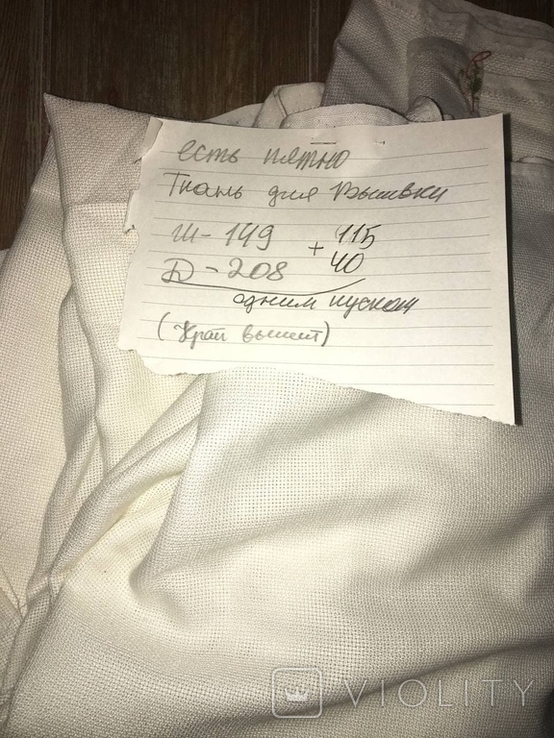 есть пятно
Ткань для Вышивки
Ш-149 + 115
Д-208 40
одним куском
(Край вышит)
VIOLITY